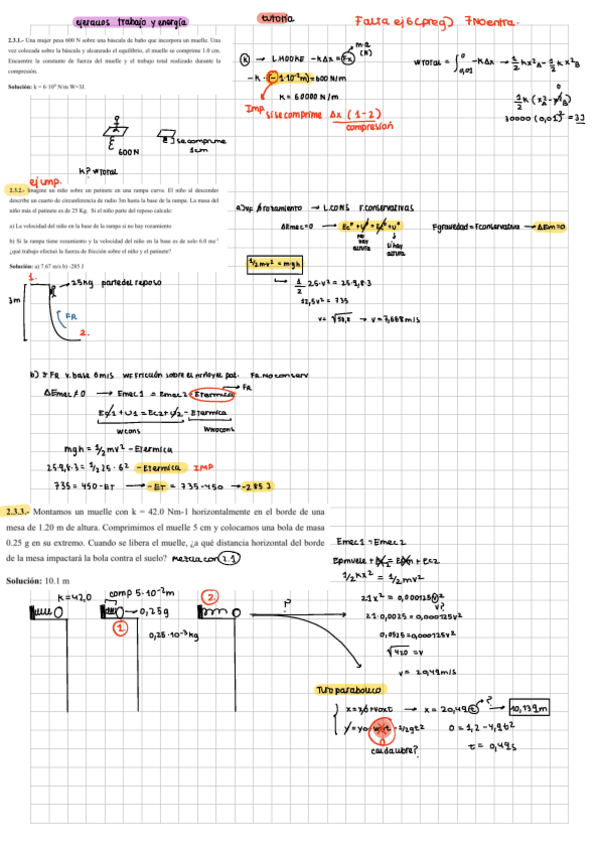 ejercicios trabajo y energía
tutoria
Falta ej 6 (preg) 7 No entra.
2.3.1.- Una mujer pesa 600 N sobre una báscula de baño que incorpora un muelle. Una
vez colocada sobre la báscula y alcanzado el equilibrio, el muelle se comprime 1.0 cm.
Encuentre la constante de fuerza del muelle y el trabajo total realizado durante la
compresión.
Solución: k = 6·10⁴ N/m W=3J.
K → L.HOOKE -KΔx = Fx
-K · (-1·10⁻²m) = 600 N/m
K = 60000 N/m
Imp si se comprime Δx (1-2)
compresión
W TOTAL = ∫ -KΔx → 1/2 Kx²A - 1/2 K x²B
30000 (0,01)² = 3J
600N
se comprime
1cm
K? W total
ej imp.
2.3.2.- Imagine un niño sobre un patinete en una rampa curva. El niño al descender
describe un cuarto de circunferencia de radio 3m hasta la base de la rampa. La masa del
niño más el patinete es de 25 Kg. Si el niño parte del reposo calcule:
a) La velocidad del niño en la base de la rampa si no hay rozamiento
b) Si la rampa tiene rozamiento y la velocidad del niño en la base es de solo 6.0 ms⁻¹
¿qué trabajo efectuó la fuerza de fricción sobre el niño y el patinete?
Solución: a) 7.67 m/s b) -285 J
→ L.CONS F.conservativas
ΔEmec = 0
F gravedad = F conservativa → ΔEm = 0
1/2mv² = mgh
1/2 25·v² = 25·9,8·3
12,5v² = 735
1.
25kg parte del reposo
3m
FR
2.
ΔEmec ≠ 0 → Emec1 = Emec2 + Etermica → FR
Ec1 + U1 = Ec2 + U2 - Etermica
Wcons
Wnocons
mgh = 1/2mv² - Etermica
25·9,8·3 = 1/2 25·6² - Etermica IMP
735 = 450 - ET → -ET = 735-450 → -285J
2.3.3.- Montamos un muelle con k = 42.0 Nm-1 horizontalmente en el borde de una
mesa de 1.20 m de altura. Comprimimos el muelle 5 cm y colocamos una bola de masa
0.25 g en su extremo. Cuando se libera el muelle, ¿a qué distancia horizontal del borde
de la mesa impactará la bola contra el suelo? mezcla con 2.1
Solución: 10.1 m
K=42,0
comp 5·10⁻²m
0,25g
0,25·10⁻³kg
1
2
?
Emec1 = Emec2
1/2 Kx² = 1/2mv²
21x² = 0,000125v²
v?
21·0,0025 = 0,000125v²
0,0525 = 0,000125v²
√420 = v
v = 20,49m/s
Tiro parabolico
x = x₀ + v₀xt → x = 20,49t → 10,139m
0 = 1,2 - 4,9t²
caida libre?
t = 0,49s